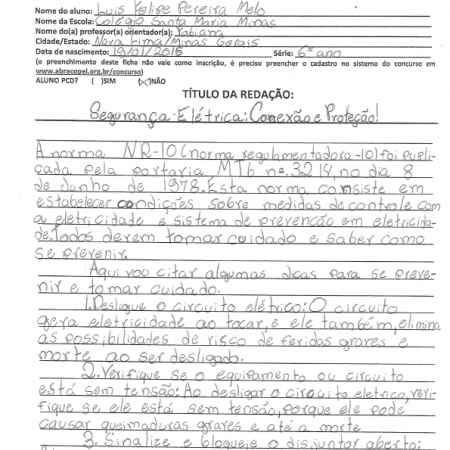 Nome do aluno: Luis Felipe Pereira Melo
Nome da Escola: Colégio Santa Maria Minas
Nome do(a) professor(a) orientador(a): Fabiana
Cidade/Estado: Nova Lima/Minas Gerais
Data de nascimento: 19/01/2015 Série: 6º ano
(o preenchimento desta ficha não vale como inscrição, é preciso preencher o cadastro no sistema do concurso em
www.abracopel.org.br/concurso)
ALUNO PCD? ( )SIM (x)NÃO
TÍTULO DA REDAÇÃO:
Segurança Elétrica: Conexão e Proteção!
A norma NR-10 (norma regulamentadora-10) foi publi-
cada pela portaria MTb nº 3214, no dia 8
de Junho de 1978. Esta norma consiste em
estabelecer condições sobre medidas de controle com
a eletricidade e sistema de prevenção em eletricida-
de. Todos devem tomar cuidado e saber como
se prevenir.
Aqui vou citar algumas dicas para se preve-
nir e tomar cuidado.
1. Desligue o circuito elétrico: O circuito
gera eletricidade ao tocar, e ele também, elimina
as possibilidades de risco de feridas graves e
morte ao ser desligado.
2. Verifique se o equipamento ou circuito
está sem tensão: Ao desligar o circuito eletrico, veri-
fique se ele está sem tensão, porque ele pode
causar queimaduras graves e até a morte
3. Sinalize e bloqueie o disjuntor aberto: